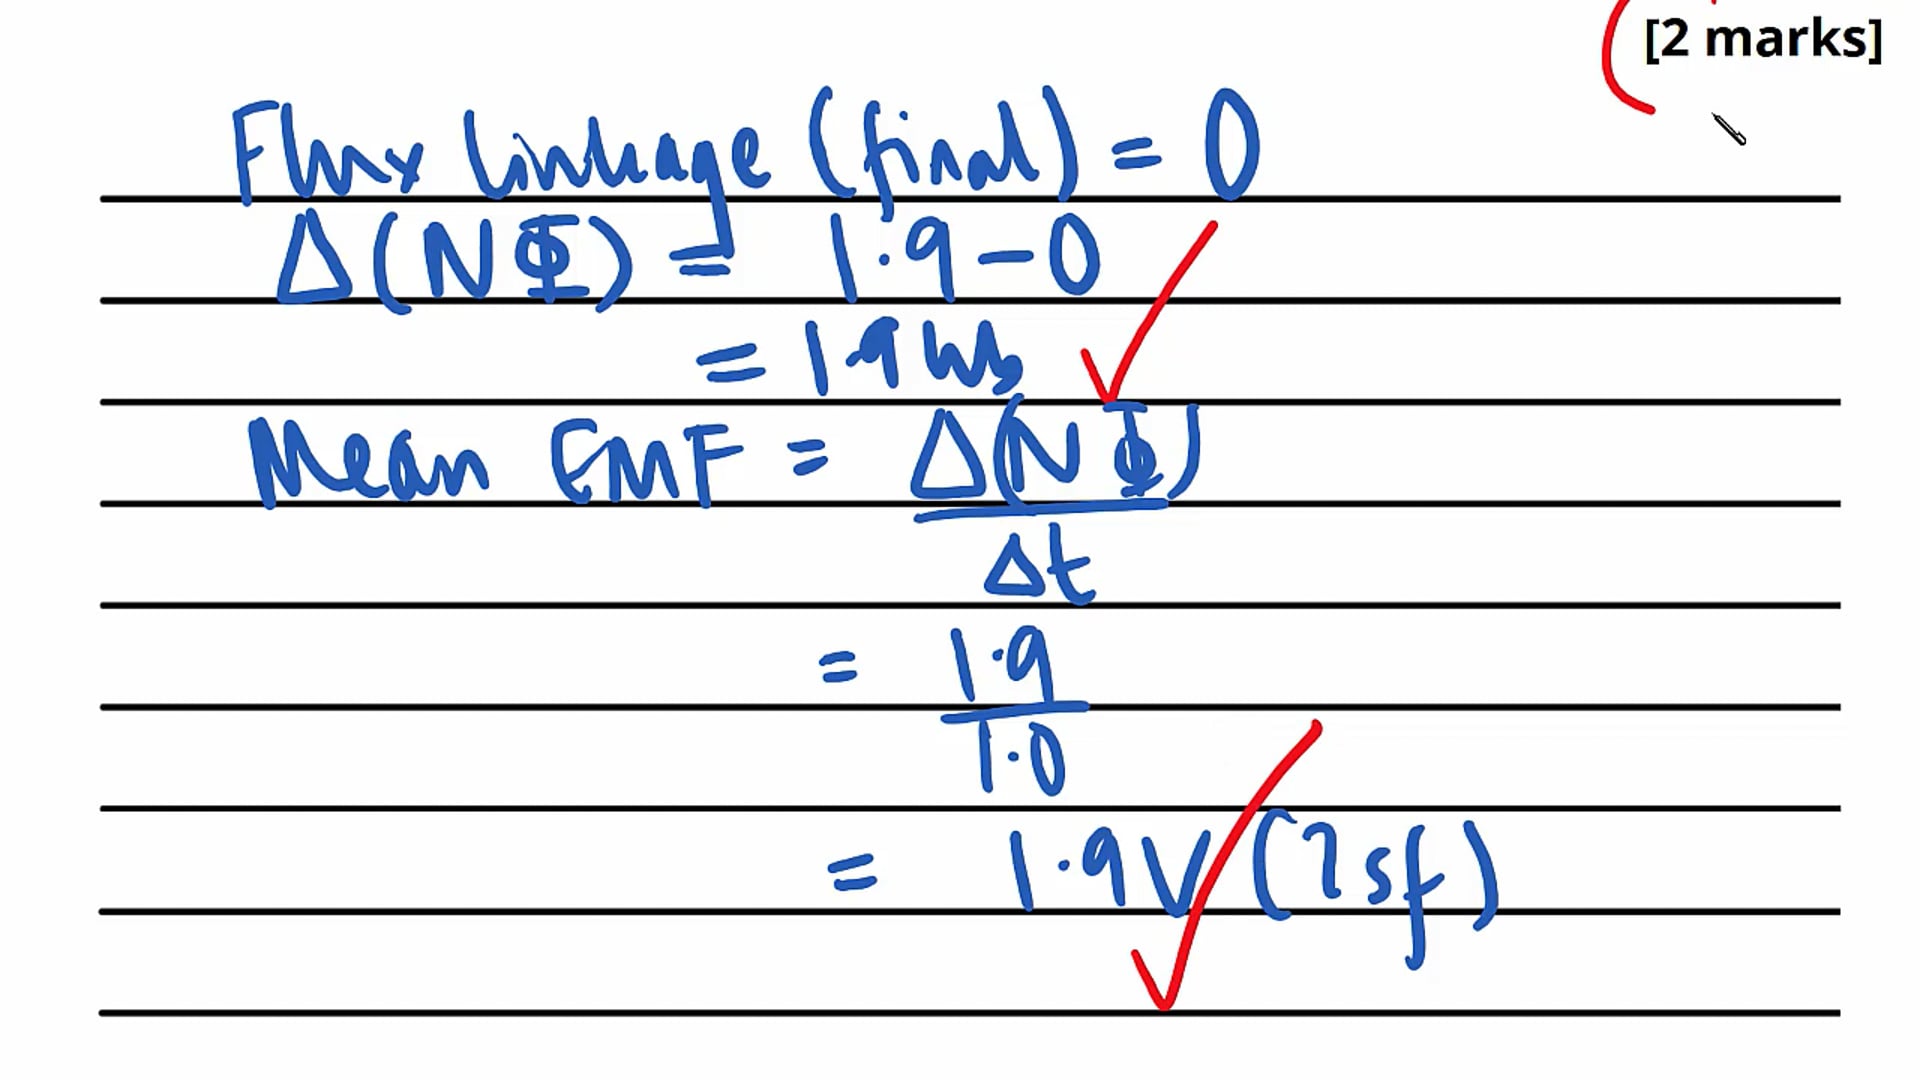 [2 marks]
Flux linkage (final) = 0
Δ(NΦ) = 1.9 - 0
= 1.9 Wb
Mean EMF = Δ(NΦ)
Δt
= 1.9
1.0
= 1.9V (2sf)